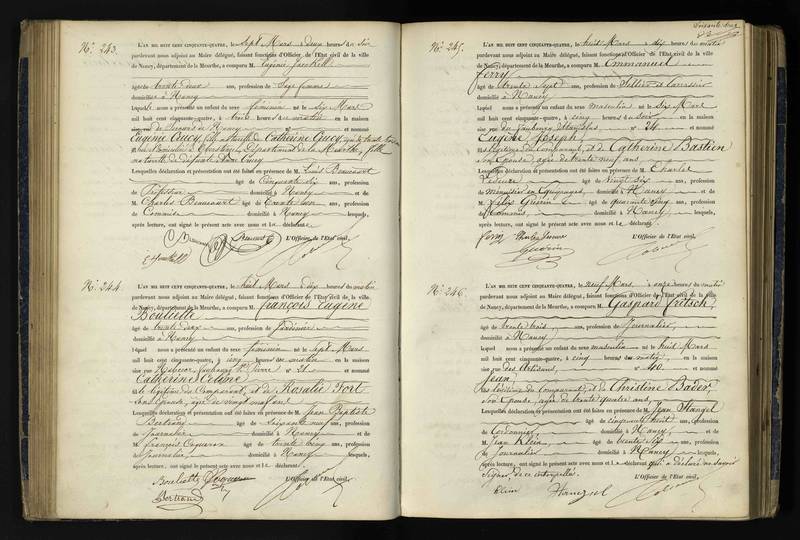 Nº 243.
L'AN MIL HUIT CENT CINQUANTE-QUATRE, le sept Mars à deux heures du soir
pardevant nous adjoint au Maire délégué, faisant fonctions d'Officier de l'Etat civil de la ville
de Nancy, département de la Meurthe, a comparu M. Eugénie
âgée de trente deux ans, profession de Sage femme
domiciliée à Nancy
Laquelle nous a présenté un enfant du sexe féminin né le six Mars
mil huit cent cinquante-quatre, à trois heures du matin en la maison
de Secours de Nancy nº et nommé
Eugénie Cucy, fille naturelle de Catherine Cucy
Département de la Meurthe, fille
naturelle de
Lesquelles déclaration et présentation ont été faites en présence de M. Louis Beaucourt
âgé de Cinquante six ans, profession
de Professeur domicilié à Nancy et de
M. Charles Beaucourt âgé de trente ans, profession
de Commis domicilié à Nancy lesquels,
après lecture, ont signé le présent acte avec nous et la déclarante
L'Officier de l'Etat civil,
Nº 244
L'AN MIL HUIT CENT CINQUANTE-QUATRE, le huit Mars dix heures du matin
pardevant nous adjoint au Maire délégué, faisant fonctions d'Officier de l'Etat civil de la ville
de Nancy, département de la Meurthe, a comparu M. François Eugène
Bouliette
âgé de trente deux ans, profession de Jardinier
domicilié à Nancy
Lequel nous a présenté un enfant du sexe féminin né le sept Mars
mil huit cent cinquante-quatre, à cinq heures du matin en la maison
sise faubourg St Pierre nº 21 et nommé
Catherine Céline
fille légitime du Comparant, et de Rosalie Fort
son Epouse, âgée de vingt neuf ans
Lesquelles déclaration et présentation ont été faites en présence de M. Jean Baptiste
Bertrand âgé de soixante neuf ans, profession
de Journalier domicilié à Nancy et de
M. François âgé de trente cinq ans, profession
de Journalier domicilié à Nancy lesquels,
après lecture, ont signé le présent acte avec nous et le déclarant.
Bouliette
L'Officier de l'Etat civil,
Bertrand
Nº 245.
L'AN MIL HUIT CENT CINQUANTE-QUATRE, le huit Mars à dix heures du matin
pardevant nous adjoint au Maire délégué, faisant fonctions d'Officier de l'Etat civil de la ville
de Nancy, département de la Meurthe, a comparu M. Emmanuel
Ferry
âgé de trente sept ans, profession de Sellier et Carrossier
domicilié à Nancy
Lequel nous a présenté un enfant du sexe masculin né le six Mars
mil huit cent cinquante-quatre, à cinq heures du soir en la maison
sise du faubourg Stanislas nº 24 et nommé
Eugène Joseph
fils légitime du Comparant, et de Catherine Bastien
son Epouse, âgée de trente neuf ans
Lesquelles déclaration et présentation ont été faites en présence de M. Charles
âgé de vingt six ans, profession
de Menuisier en Equipages, domicilié à Nancy et de
M. Félix Guérin âgé de quarante cinq ans, profession
de Commis domicilié à Nancy lesquels,
après lecture, ont signé le présent acte avec nous et le déclarant
Ferry Charles
Guérin
L'Officier de l'Etat civil,
Nº 246
L'AN MIL HUIT CENT CINQUANTE-QUATRE, le neuf Mars, à onze heures du matin
pardevant nous adjoint au Maire délégué, faisant fonctions d'Officier de l'Etat civil de la ville
de Nancy, département de la Meurthe, a comparu M. Gaspard Fritsch,
âgé de trente trois ans, profession de Journalier,
domicilié à Nancy
Lequel nous a présenté un enfant du sexe masculin né le huit Mars
mil huit cent cinquante-quatre, à cinq heures du matin, en la maison
sise rue des Artisans, nº 40. et nommé
Jean
fils légitime du Comparant, et de Christine Bader,
son Epouse, âgée de trente quatre ans,
Lesquelles déclaration et présentation ont été faites en présence de M. Jean Hangel
âgé de cinquante huit ans, profession
de Cordonnier, domicilié à Nancy et de
M. Jean Klein, âgé de trente six ans, profession
de Journalier domicilié à Nancy lesquels,
après lecture, ont signé le présent acte avec nous et le déclarant qui a déclaré ne savoir
signer, de ce interpellé.
L'Officier de l'Etat civil,
Klein